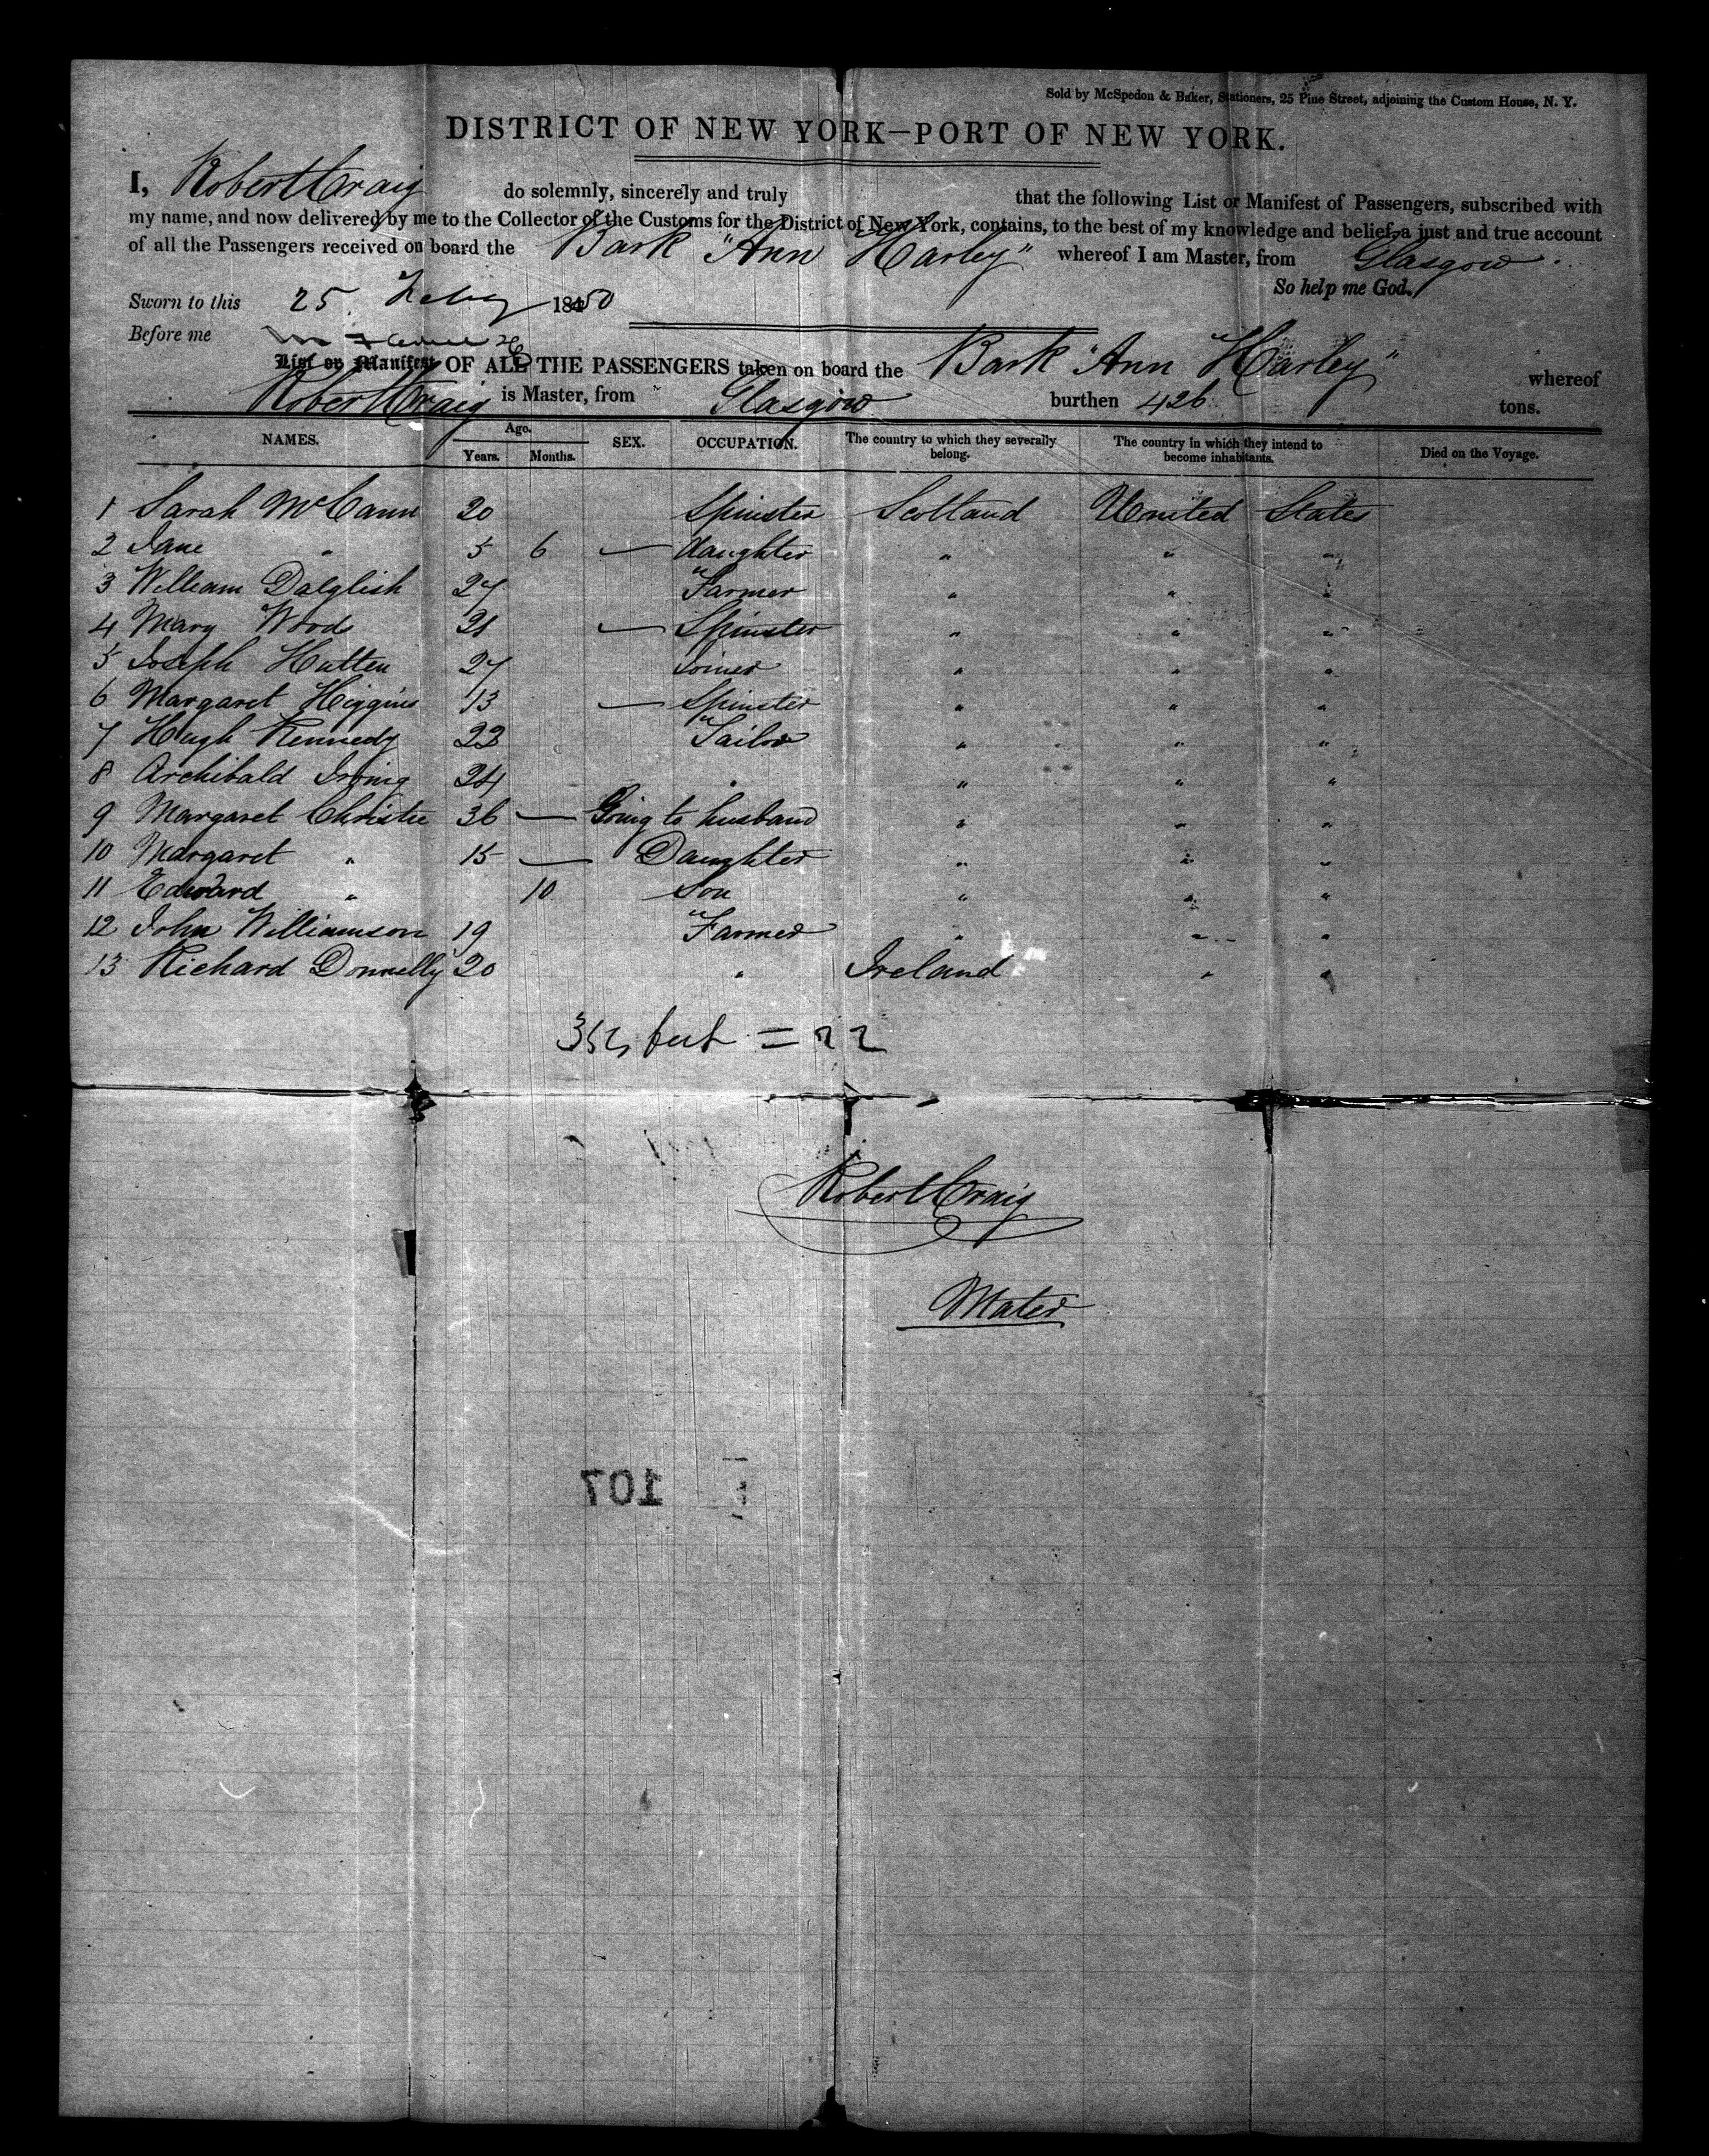 Sold by McSpedon & Baker, Stationers, 25 Pine Street, adjoining the Custom House, N. Y.
DISTRICT OF NEW YORK—PORT OF NEW YORK.
I, Robert Craig do solemnly, sincerely and truly that the following List or Manifest of Passengers, subscribed with
my name, and now delivered by me to the Collector of the Customs for the District of New York, contains, to the best of my knowledge and belief, a just and true account
of all the Passengers received on board the Bark "Ann Harley" whereof I am Master, from Glasgow.
So help me God.
Sworn to this 25 Feby 1850
Before me
List or Manifest OF ALL THE PASSENGERS taken on board the Bark "Ann Harley" whereof
Robert Craig is Master, from Glasgow burthen 426 tons.
NAMES. Age. Years. Months. SEX. OCCUPATION. The country to which they severally belong. The country in which they intend to become inhabitants. Died on the Voyage.
1 Sarah McCann 20 Spinster Scotland United States
2 Jane " 5 6 — daughter " " "
3 William Dalglish 27 " Farmer " " "
4 Mary Wood 21 — Spinster " " "
5 Joseph Hutten 27 Joiner " " "
6 Margaret Higgins 13 — Spinster " " "
7 Hugh Kennedy 22 " Tailor " " "
8 Archibald Irving 24 " " " "
9 Margaret Christie 36 — Going to husband " " "
10 Margaret " 15 — Daughter " " "
11 Edward " 10 Son " " "
12 John Williamson 19 " Farmer " " "
13 Richard Donnelly 20 " Ireland " "
feet = 22
Robert Craig
Mater
107